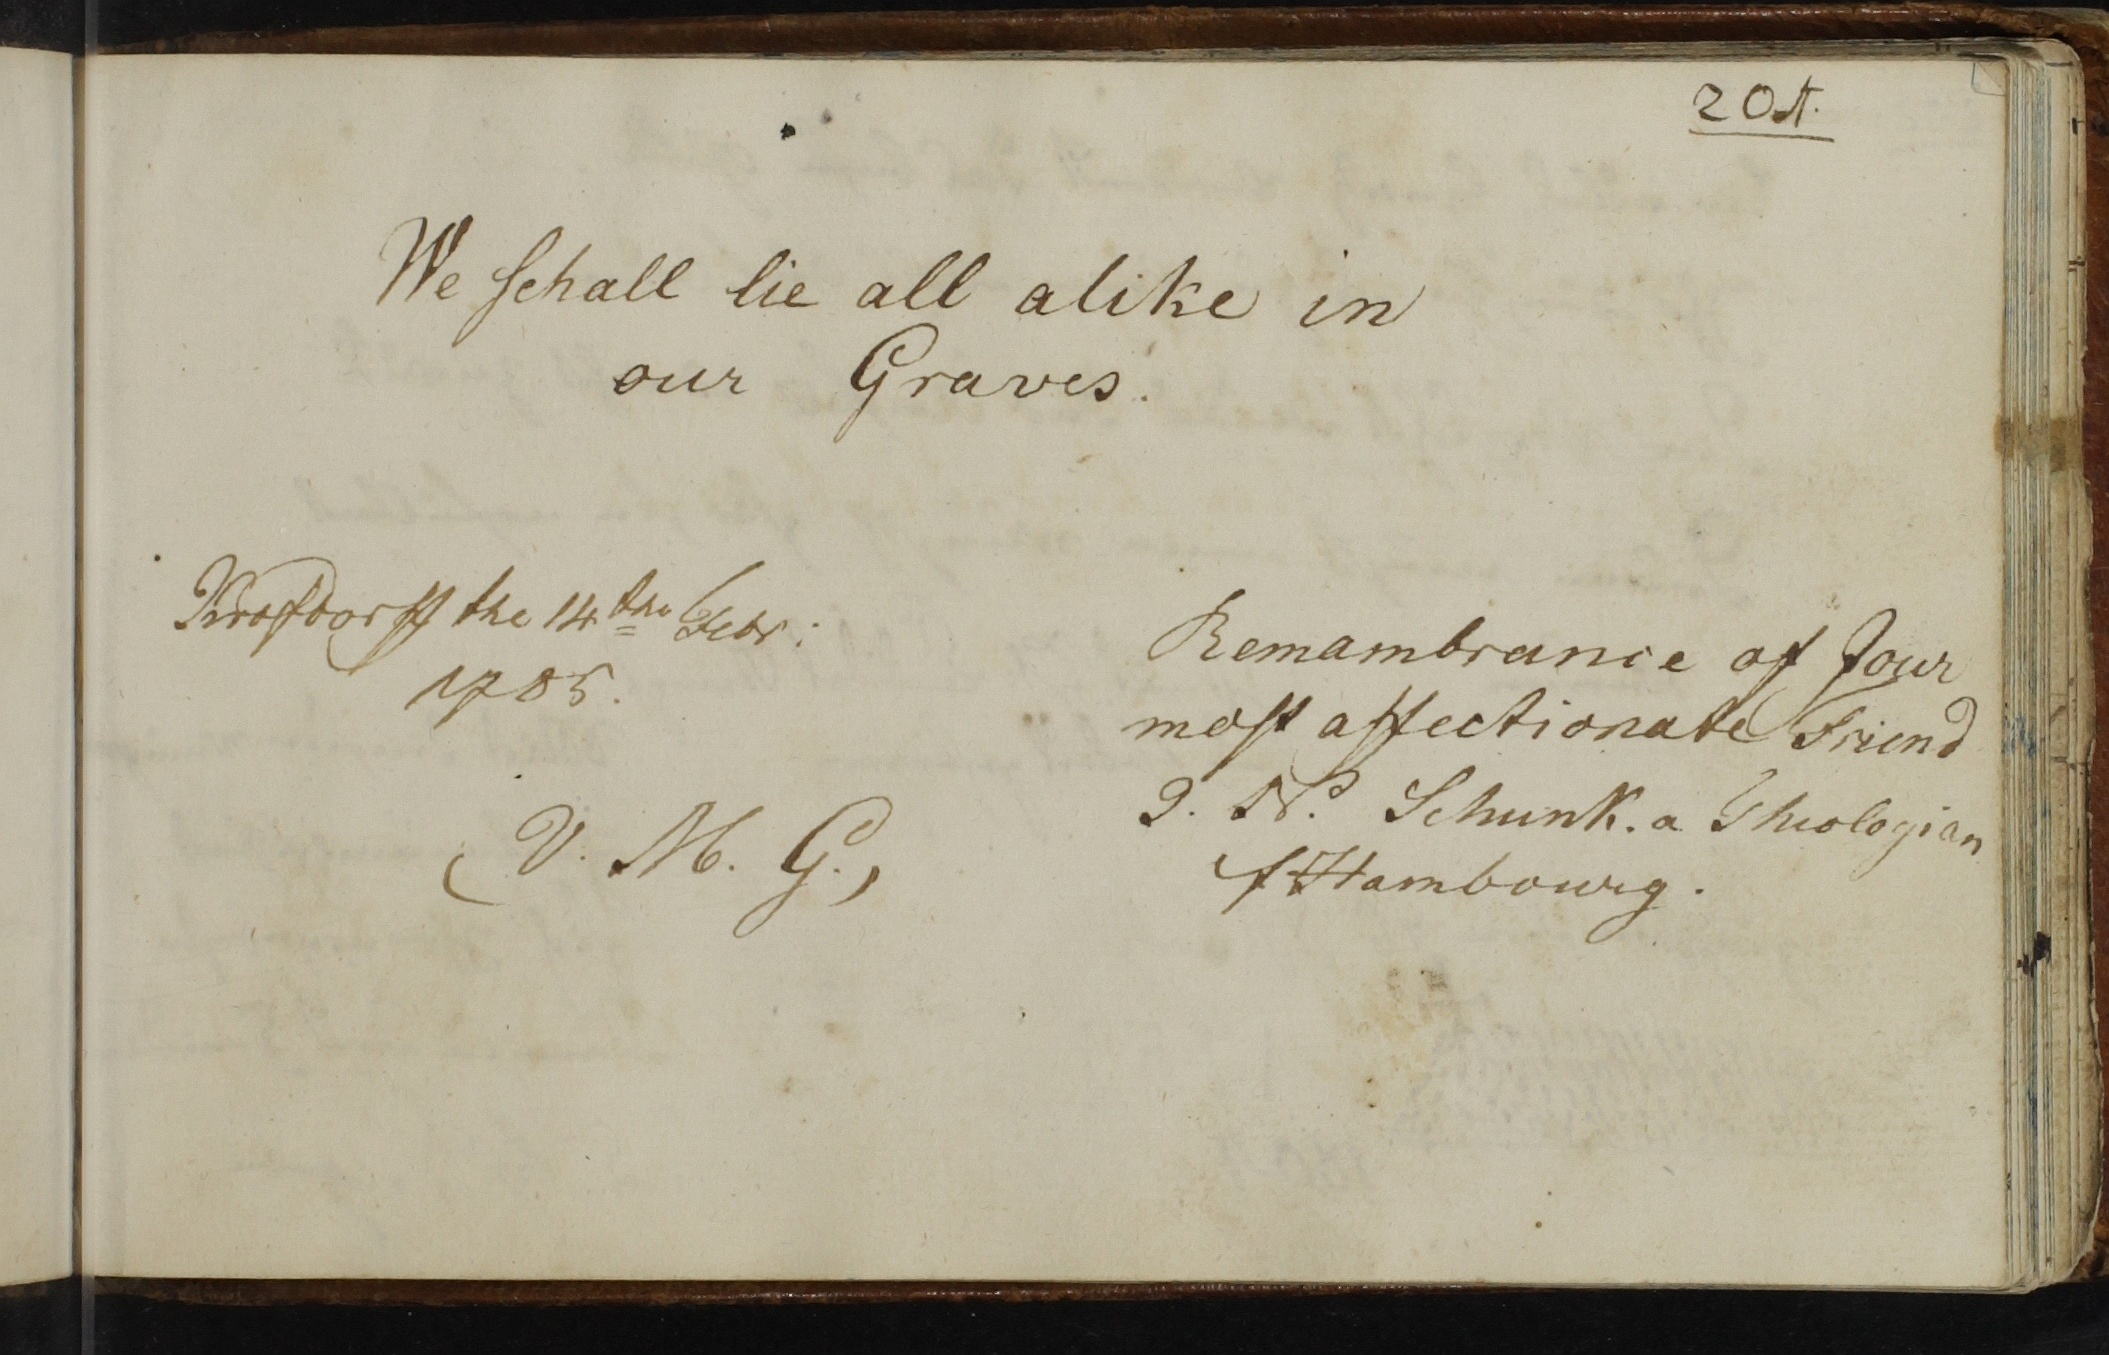 201.
We schall lie all alike in
our Graves.
Krofdorff the 14the Febr:
1785.
(V. M. G.)
Remambrance of Jour
most affectionate Friend
J. N. Schunk. a Theologian
f Hambourg.